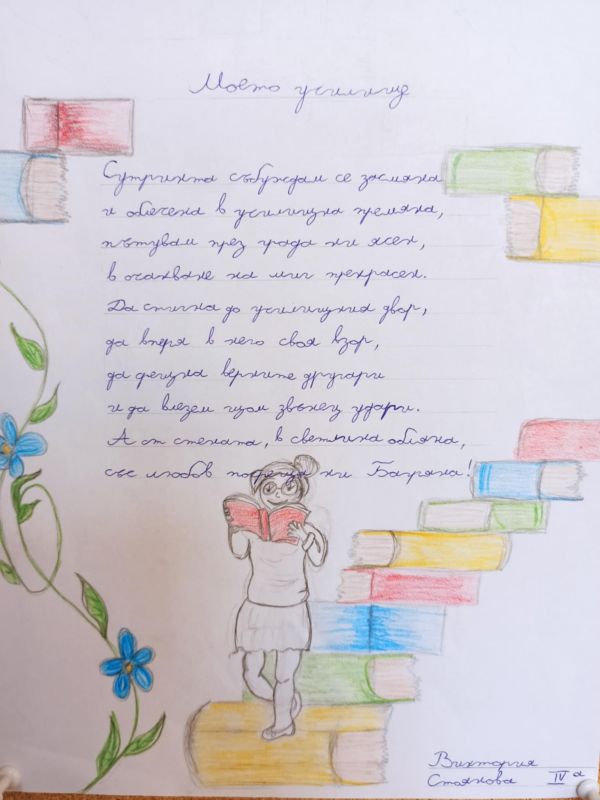 Моето училище
Сутринта събуждам се засмяна
и облечена в училищна премяна,
пътувам през града ни ясен,
в очакване на миг прекрасен.
Да стигна до училищния двор,
да вперя в него своя взор,
да зърна верните другари
и да влезем щом звънец удари.
А от стената, в светлина обляна,
със любов посреща ни Багряна!
Виктория
Стоянова IV а